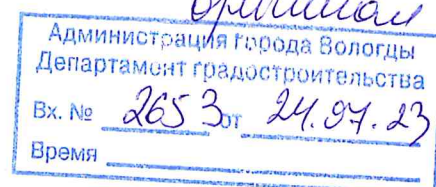 оригинал
Администрация города Вологды
Департамент градостроительства
Вх. № 2653 от 24.07.23
Время